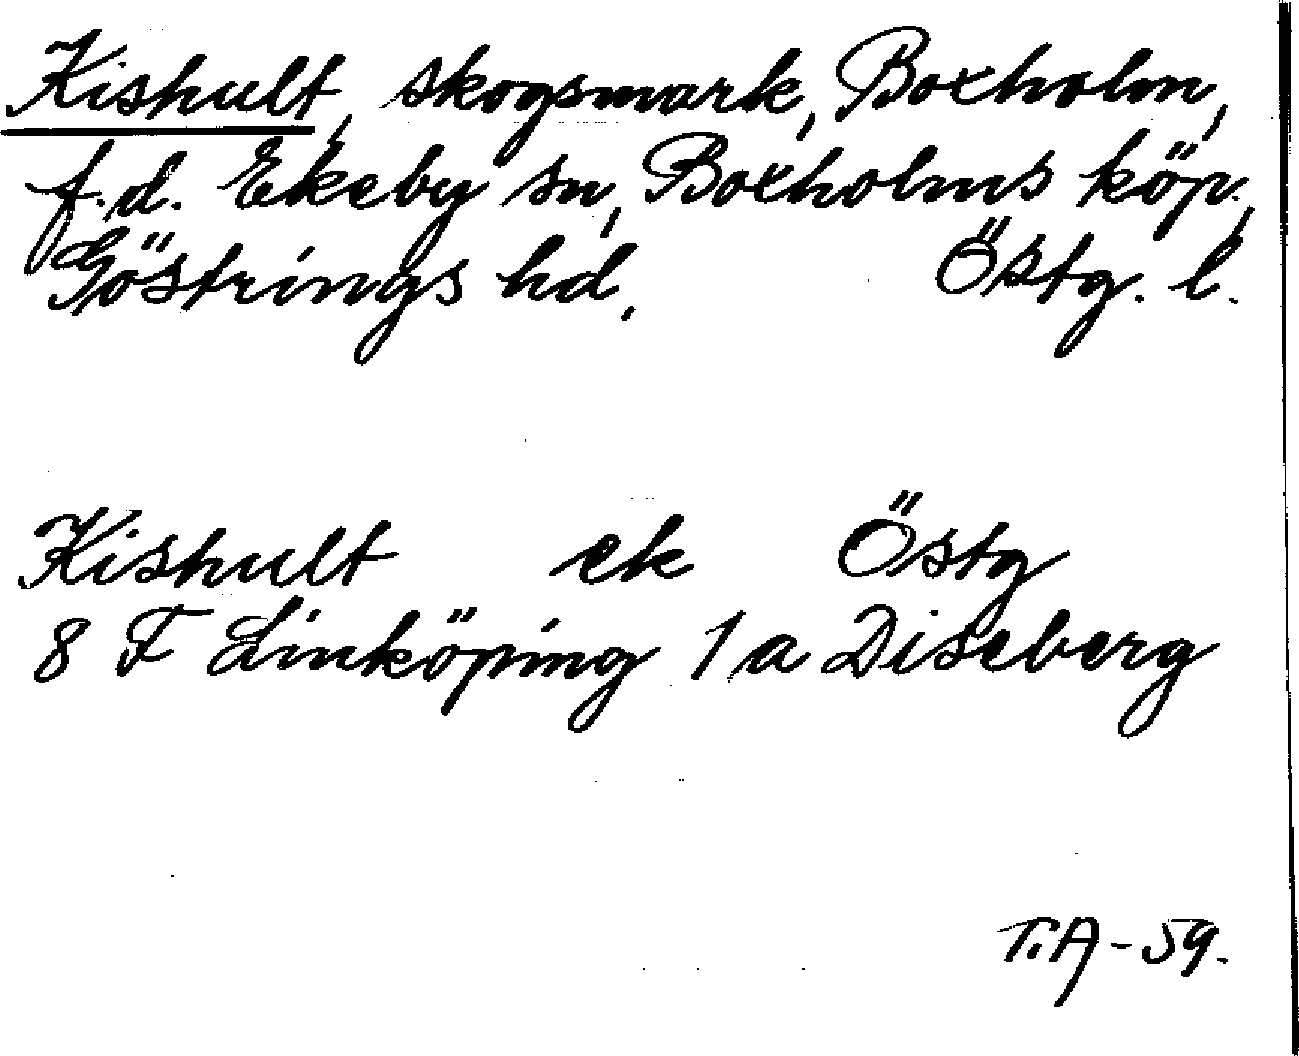 Kishult, skogsmark, Boxholm,
f.d. Ekeby sn, Boxholms köp.,
Göstrings hd, Östg. l.
Kishult ek Östg
8 F Linköping 1 a Diseberg
T.A-59.